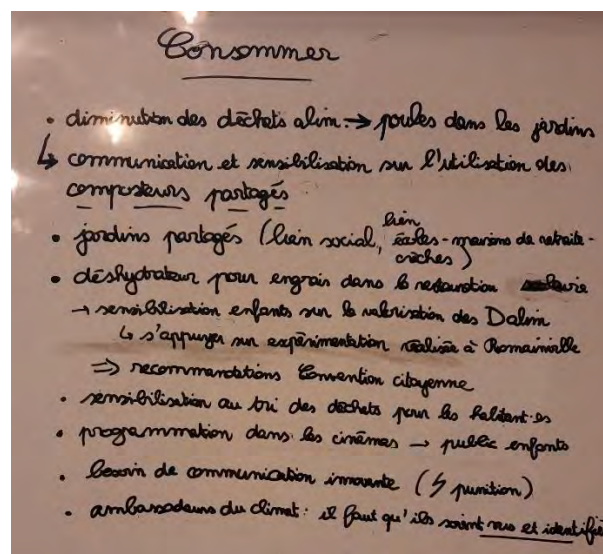 Consommer
• diminution des déchets alim. → poules dans les jardins
↳ communication et sensibilisation sur l'utilisation des
composteurs partagés
• jardins partagés (lien social, lien écoles - maisons de retraite - crèches)
• déshydrateur pour engrais dans la restauration
→ sensibilisation enfants sur la valorisation des Dalim
↳ s'appuyer sur expérimentation réalisée à Romainville
⇒ recommandations Convention citoyenne
• sensibilisation au tri des déchets pour les habitant·es
• programmation dans les cinémas → public enfants
• besoin de communication innovante (↯ punition)
• ambassadeurs du climat : il faut qu'ils soient vus et identifié